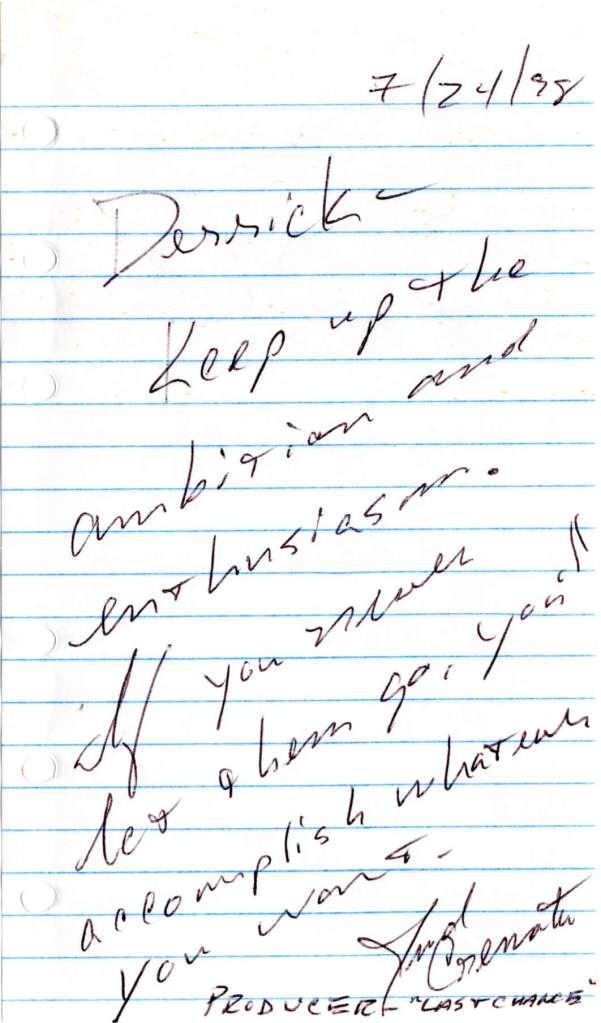 7/24/98
Derrick-
Keep up the
ambition and
enthusiasm.
If you never
let them go, you'll
accomplish whatever
you want.
PRODUCER - "LAST CHANCE"